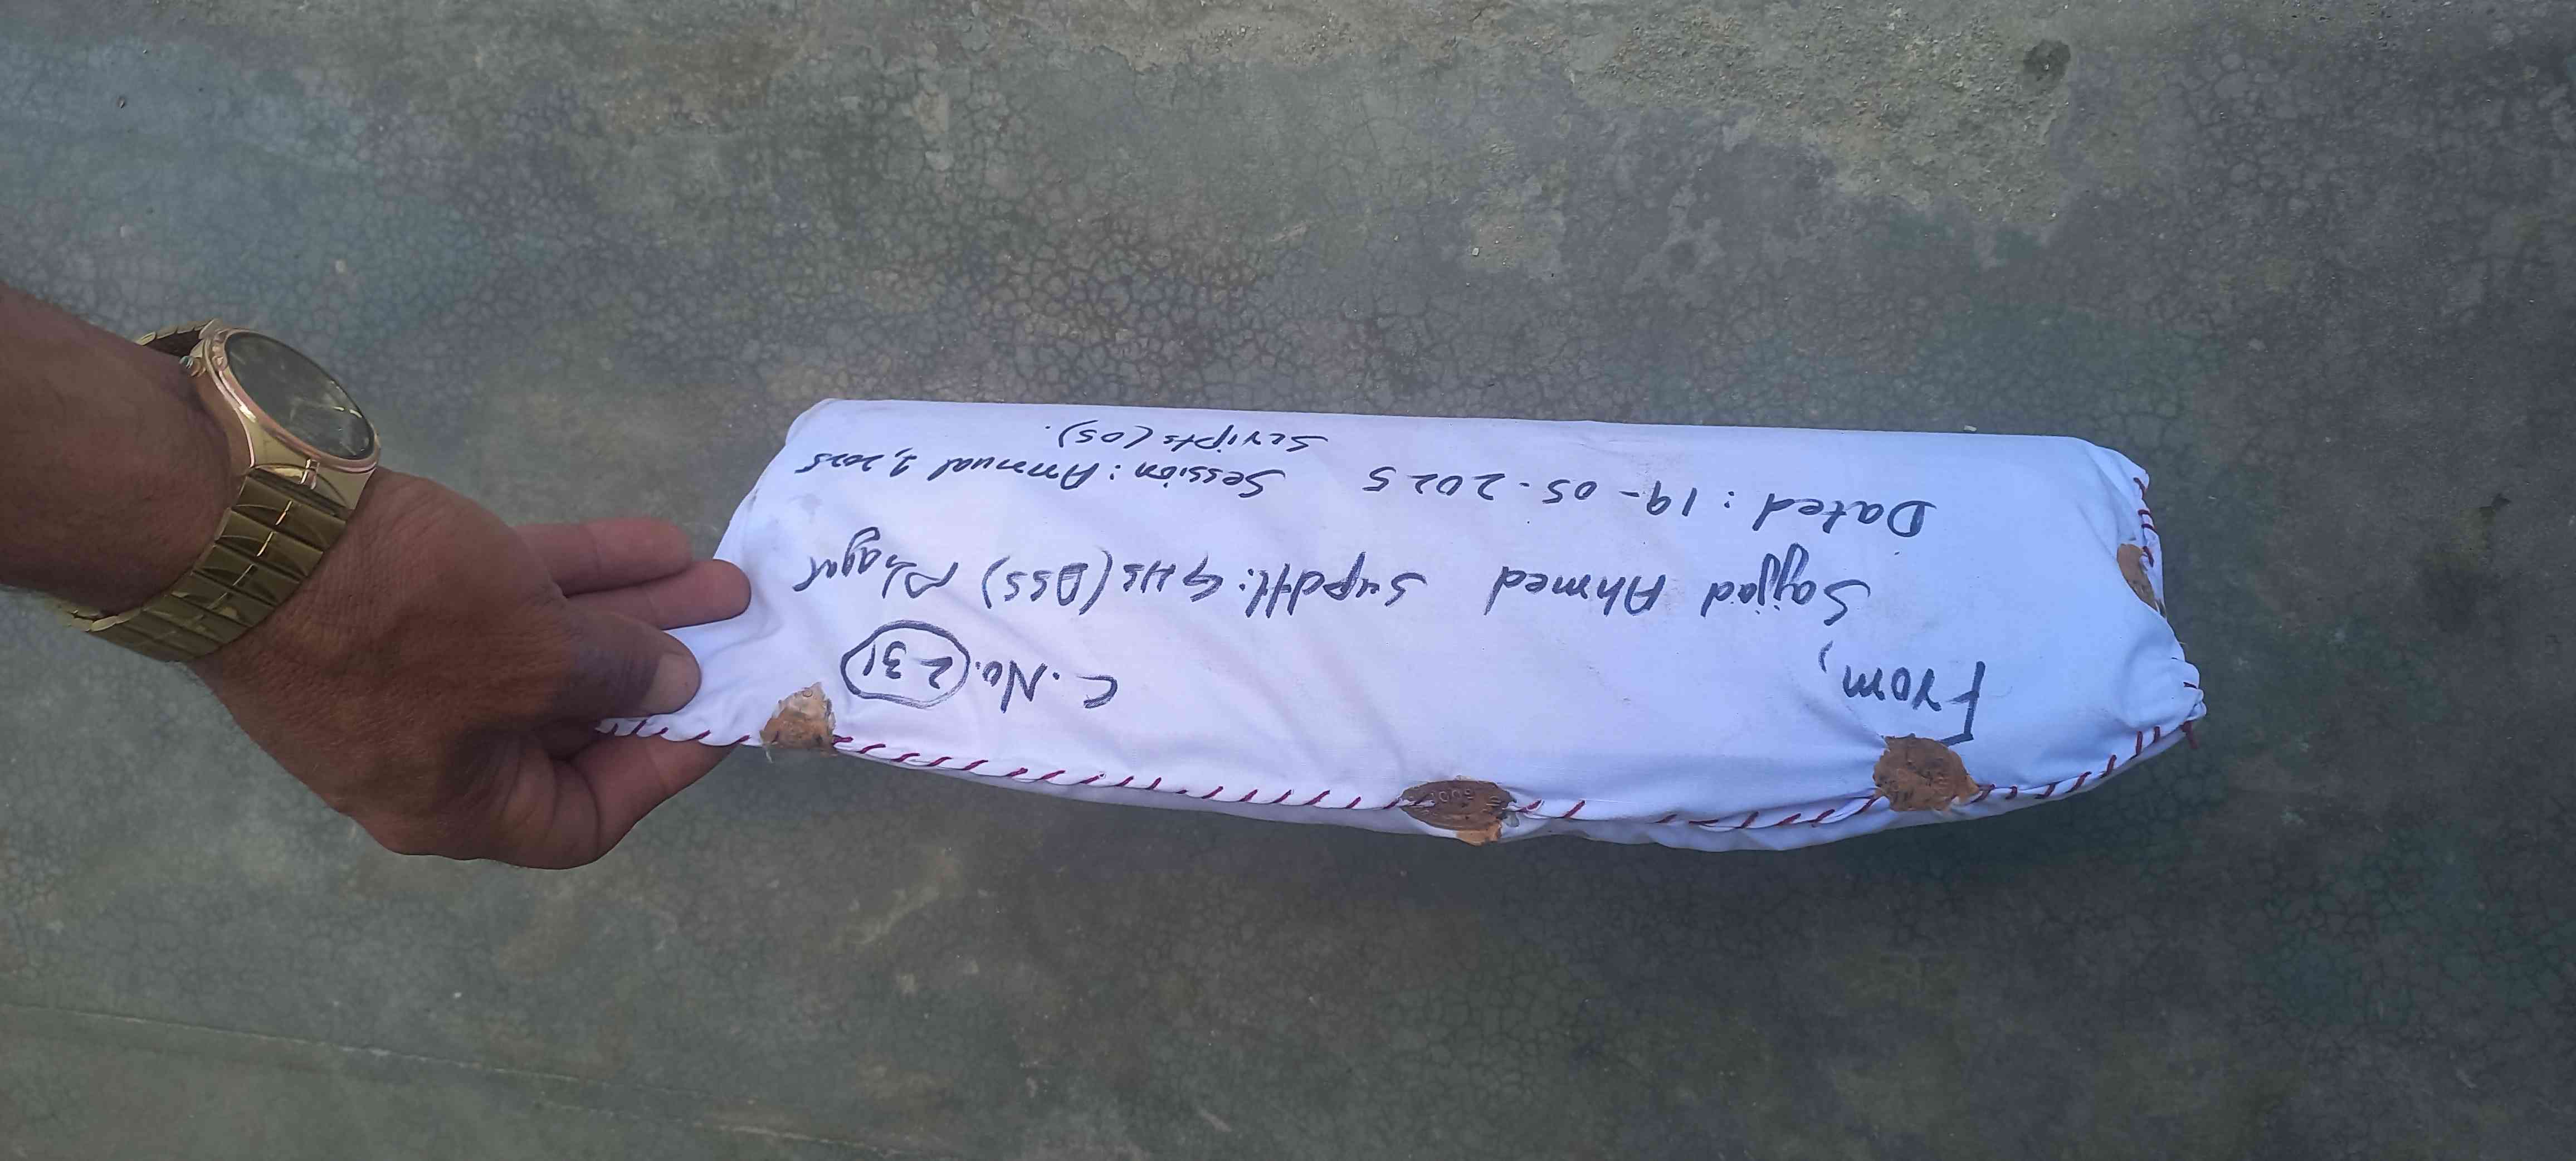 From, C. No. 231
Sajjad Ahmed Supdtt: GHS (BSS)
Dated: 19-05-2025 Session: Annual 1, 2025
Scripts (05).